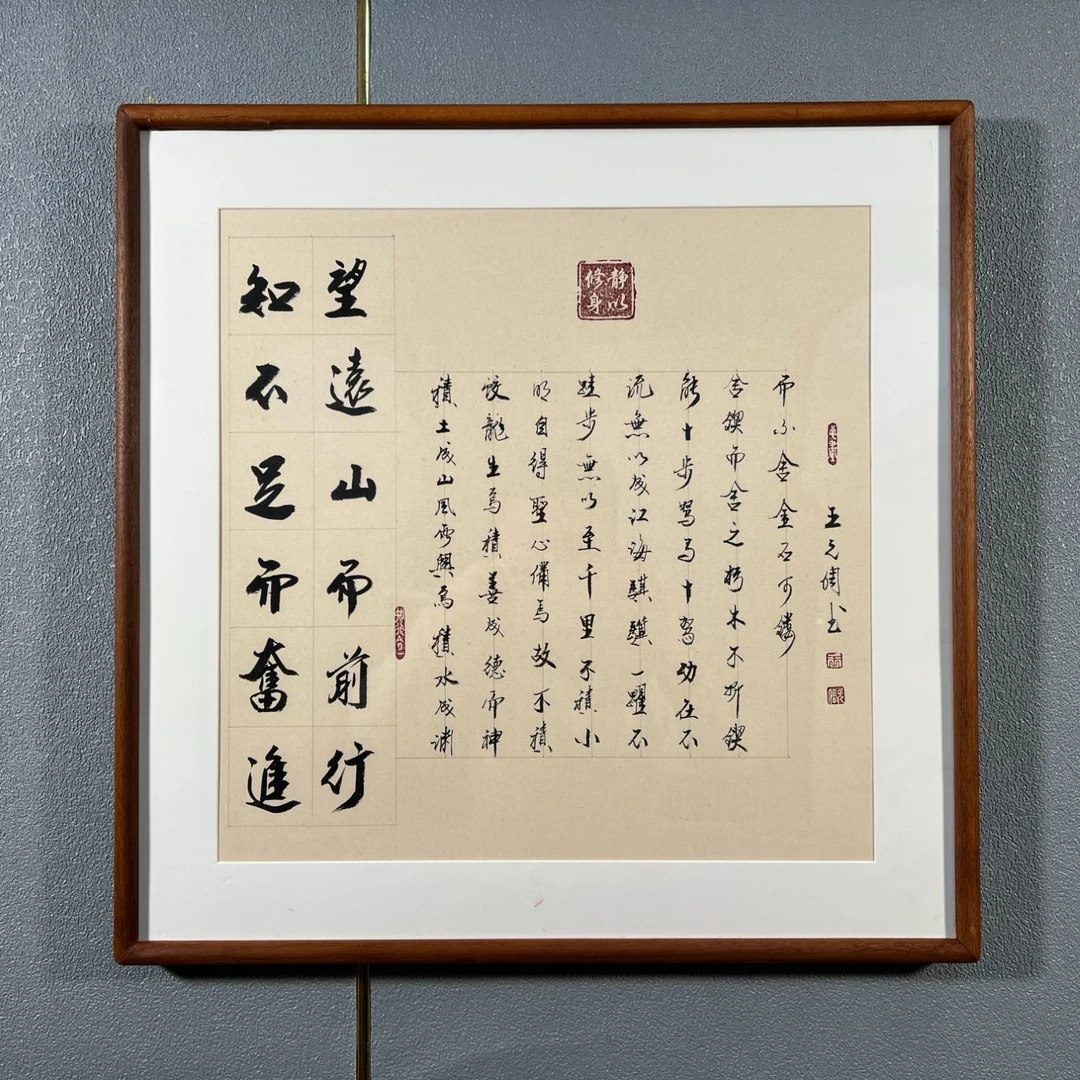 望遠山而前行
知不足而奮進
靜以修身
積土成山風雨興焉積水成淵
蛟龍生焉積善成德而神
明自得聖心備焉故不積
跬步無以至千里不積小
流無以成江海騏驥一躍不
能十步駑馬十駕功在不
舍鍥而舍之朽木不折鍥
而不舍金石可鏤
王元书